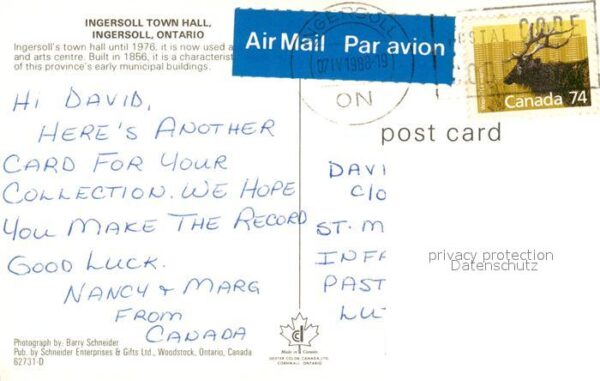 INGERSOLL TOWN HALL,
INGERSOLL, ONTARIO
Ingersoll's town hall until 1976, it is now used a
and arts centre. Built in 1856, it is a characteris
of this province's early municipal buildings.
Air Mail Par avion
INGERSOLL
07 IV 1988
ON
POSTAL CODE
Canada 74
post card
HI DAVID,
HERE'S ANOTHER
CARD FOR YOUR
COLLECTION. WE HOPE
YOU MAKE THE RECORD
GOOD LUCK.
NANCY & MARG
FROM
CANADA
DAVI
C/O
ST. M
INFA
PAST
LU
privacy protection
Datenschutz
Photograph by: Barry Schneider
Pub. by Schneider Enterprises & Gifts Ltd., Woodstock, Ontario, Canada
62731-D
Made in Canada
DEXTER COLOR CANADA LTD.
CORNWALL ONTARIO